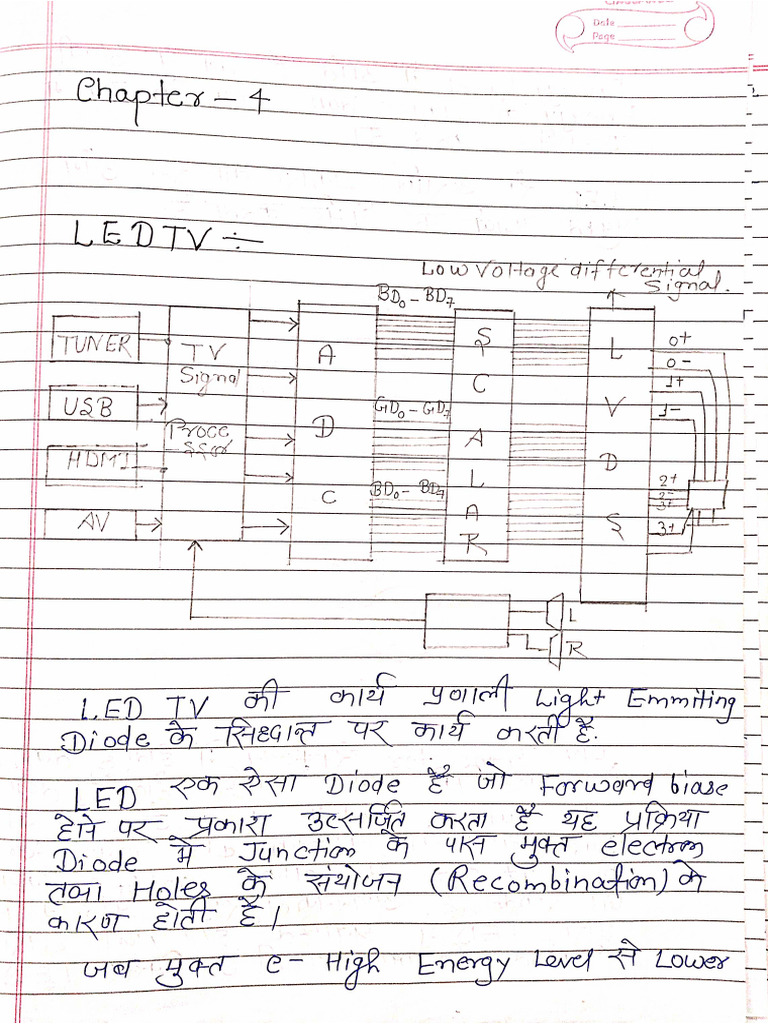 Date
Page
Chapter - 4
LED TV ÷
Low Voltage differential
Signal.
BD0 - BD7
TUNER
TV
Signal
Procc
-ssor
USB
HDMI
AV
A
D
C
GD0 - GD7
BD0 - BD7
S
C
A
L
A
R
L
V
D
S
0+
0-
1+
1-
2+
2-
3+
3+
L
R
LED TV की कार्य प्रणाली Light Emmiting
Diode के सिध्दान्त पर कार्य करती है.
LED एक ऐसा Diode है जो Forward biase
होने पर प्रकाश उत्सर्जित करता है यह प्रक्रिया
Diode मे Junction के पास मुक्त electron
तथा Holes के संयोजन (Recombination) के
कारण होती है।
जब मुक्त e- High Energy Level से Lower